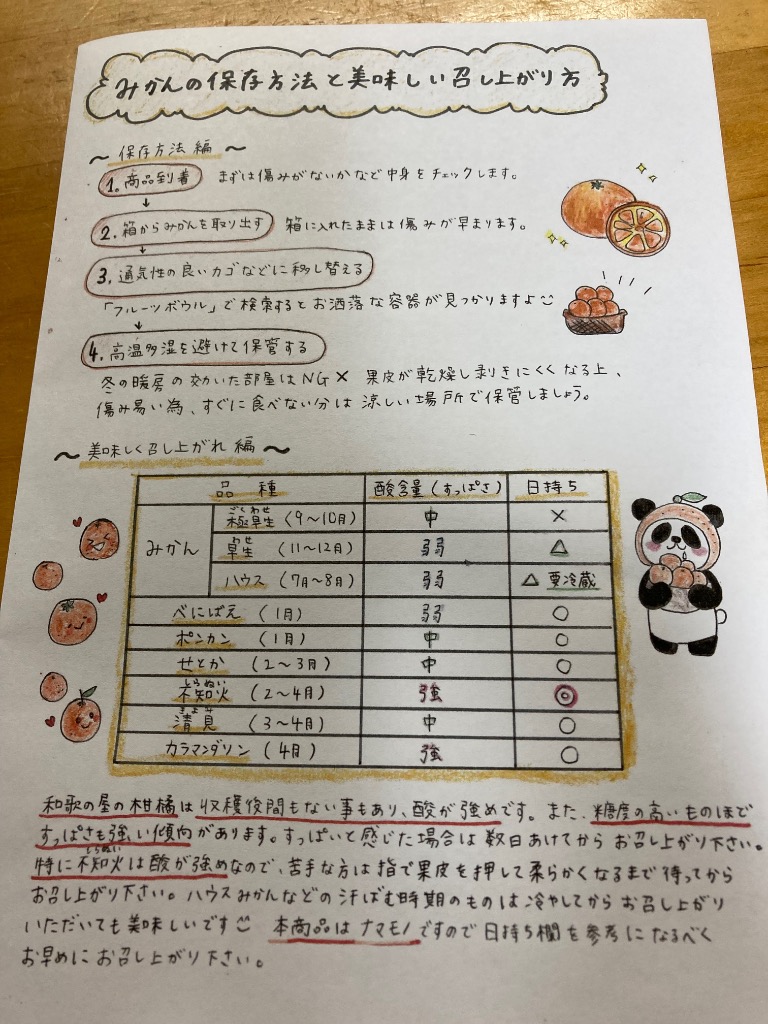 みかんの保存方法と美味しい召し上がり方
～ 保存方法編 ～
1. 商品到着 まずは傷みがないかなど中身をチェックします。
↓
2. 箱からみかんを取り出す 箱に入れたままは傷みが早まります。
↓
3. 通気性の良いカゴなどに移し替える
「フルーツボウル」で検索するとお洒落な容器が見つかりますよ
↓
4. 高温多湿を避けて保管する
冬の暖房の効いた部屋はNG× 果皮が乾燥し剥きにくくなる上、
傷み易い為、すぐに食べない分は涼しい場所で保管しましょう。
～ 美味しく召し上がれ編 ～
品種 酸含量(すっぱさ) 日持ち
みかん 極早生(9～10月) 中 ×
ごくわせ
早生(11～12月) 弱 △
わせ
ハウス(7月～8月) 弱 △ 要冷蔵
べにばえ(1月) 弱 ○
ポンカン(1月) 中 ○
せとか(2～3月) 中 ○
不知火(2～4月) 強 ◎
しらぬい
清見(3～4月) 中 ○
きよみ
カラマンダリン(4月) 強 ○
和歌の屋の柑橘は収穫後間もない事もあり、酸が強めです。また、糖度の高いものほど
すっぱさも強い傾向があります。すっぱいと感じた場合は数日あけてからお召し上がり下さい。
しらぬい
特に不知火は酸が強めなので、苦手な方は指で果皮を押して柔らかくなるまで待ってから
お召し上がり下さい。ハウスみかんなどの汗ばむ時期のものは冷やしてからお召し上がり
いただいても美味しいです 本商品はナマモノですので日持ち欄を参考になるべく
お早めにお召し上がり下さい。